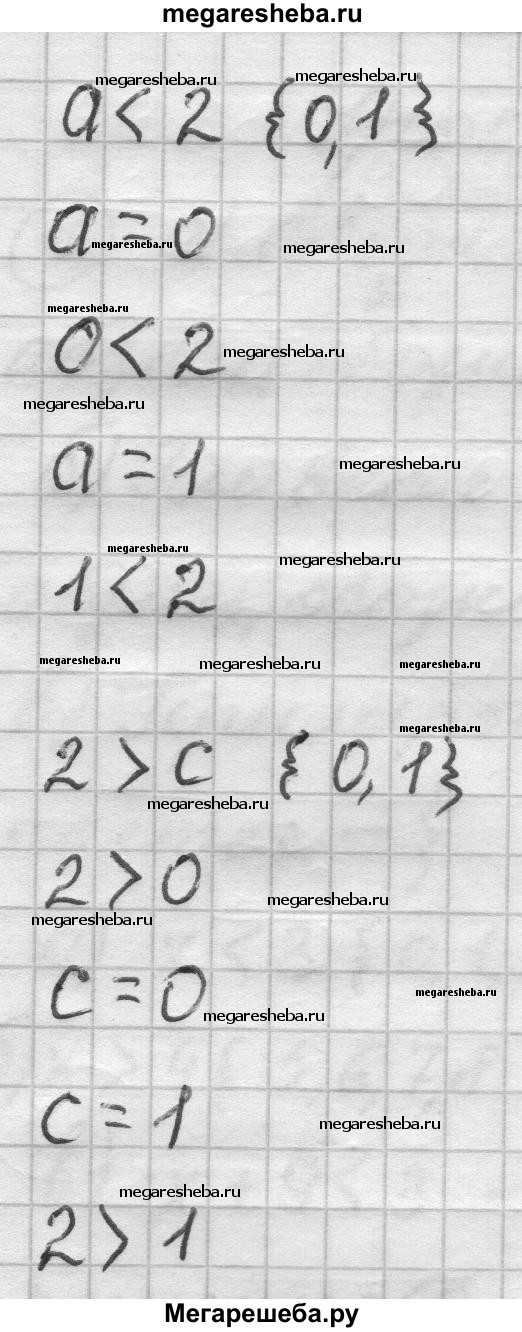 megaresheba.ru
megaresheba.ru megaresheba.ru
a < 2 {0, 1}
a = 0
megaresheba.ru megaresheba.ru
megaresheba.ru
0 < 2 megaresheba.ru
megaresheba.ru
a = 1 megaresheba.ru
megaresheba.ru megaresheba.ru
1 < 2
megaresheba.ru megaresheba.ru megaresheba.ru
megaresheba.ru
2 > c {0, 1}
megaresheba.ru
2 > 0 megaresheba.ru
megaresheba.ru
c = 0 megaresheba.ru
megaresheba.ru
c = 1 megaresheba.ru
megaresheba.ru
2 > 1
Мегарешеба.ру